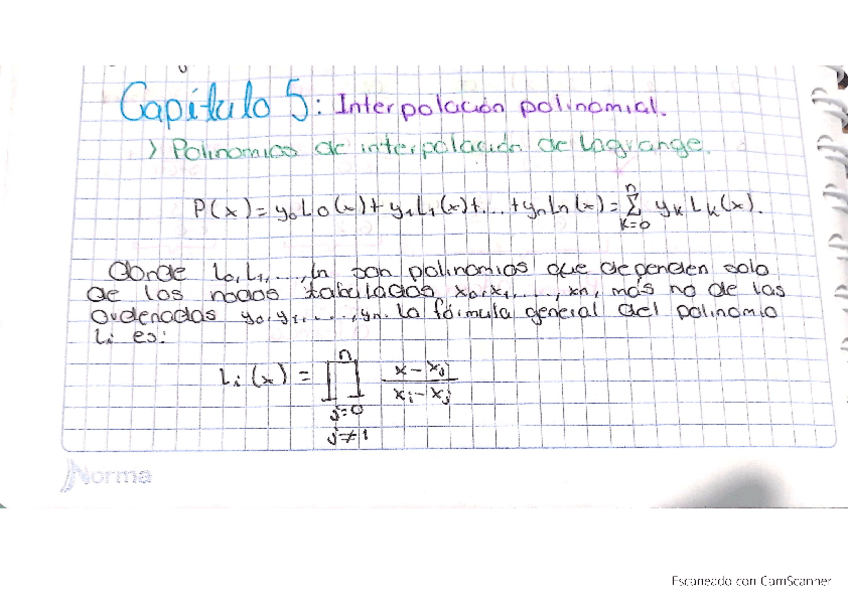 Capítulo 5: Interpolación polinomial.
> Polinomios de interpolación de Lagrange.
P(x) = y₀L₀(x) + y₁L₁(x) + ... + yₙLₙ(x) = Σ yₖLₖ(x).
n
k=0
Donde L₀, L₁, ..., Lₙ son polinomios que dependen solo
de los nodos tabulados x₀, x₁, ..., xₙ, más no de las
ordenadas y₀, y₁, ..., yₙ. La fórmula general del polinomio
Li es:
n
Lᵢ(x) = ∏ (x - xⱼ)/(xᵢ - xⱼ)
j=0
j≠1
Norma
Escaneado con CamScanner